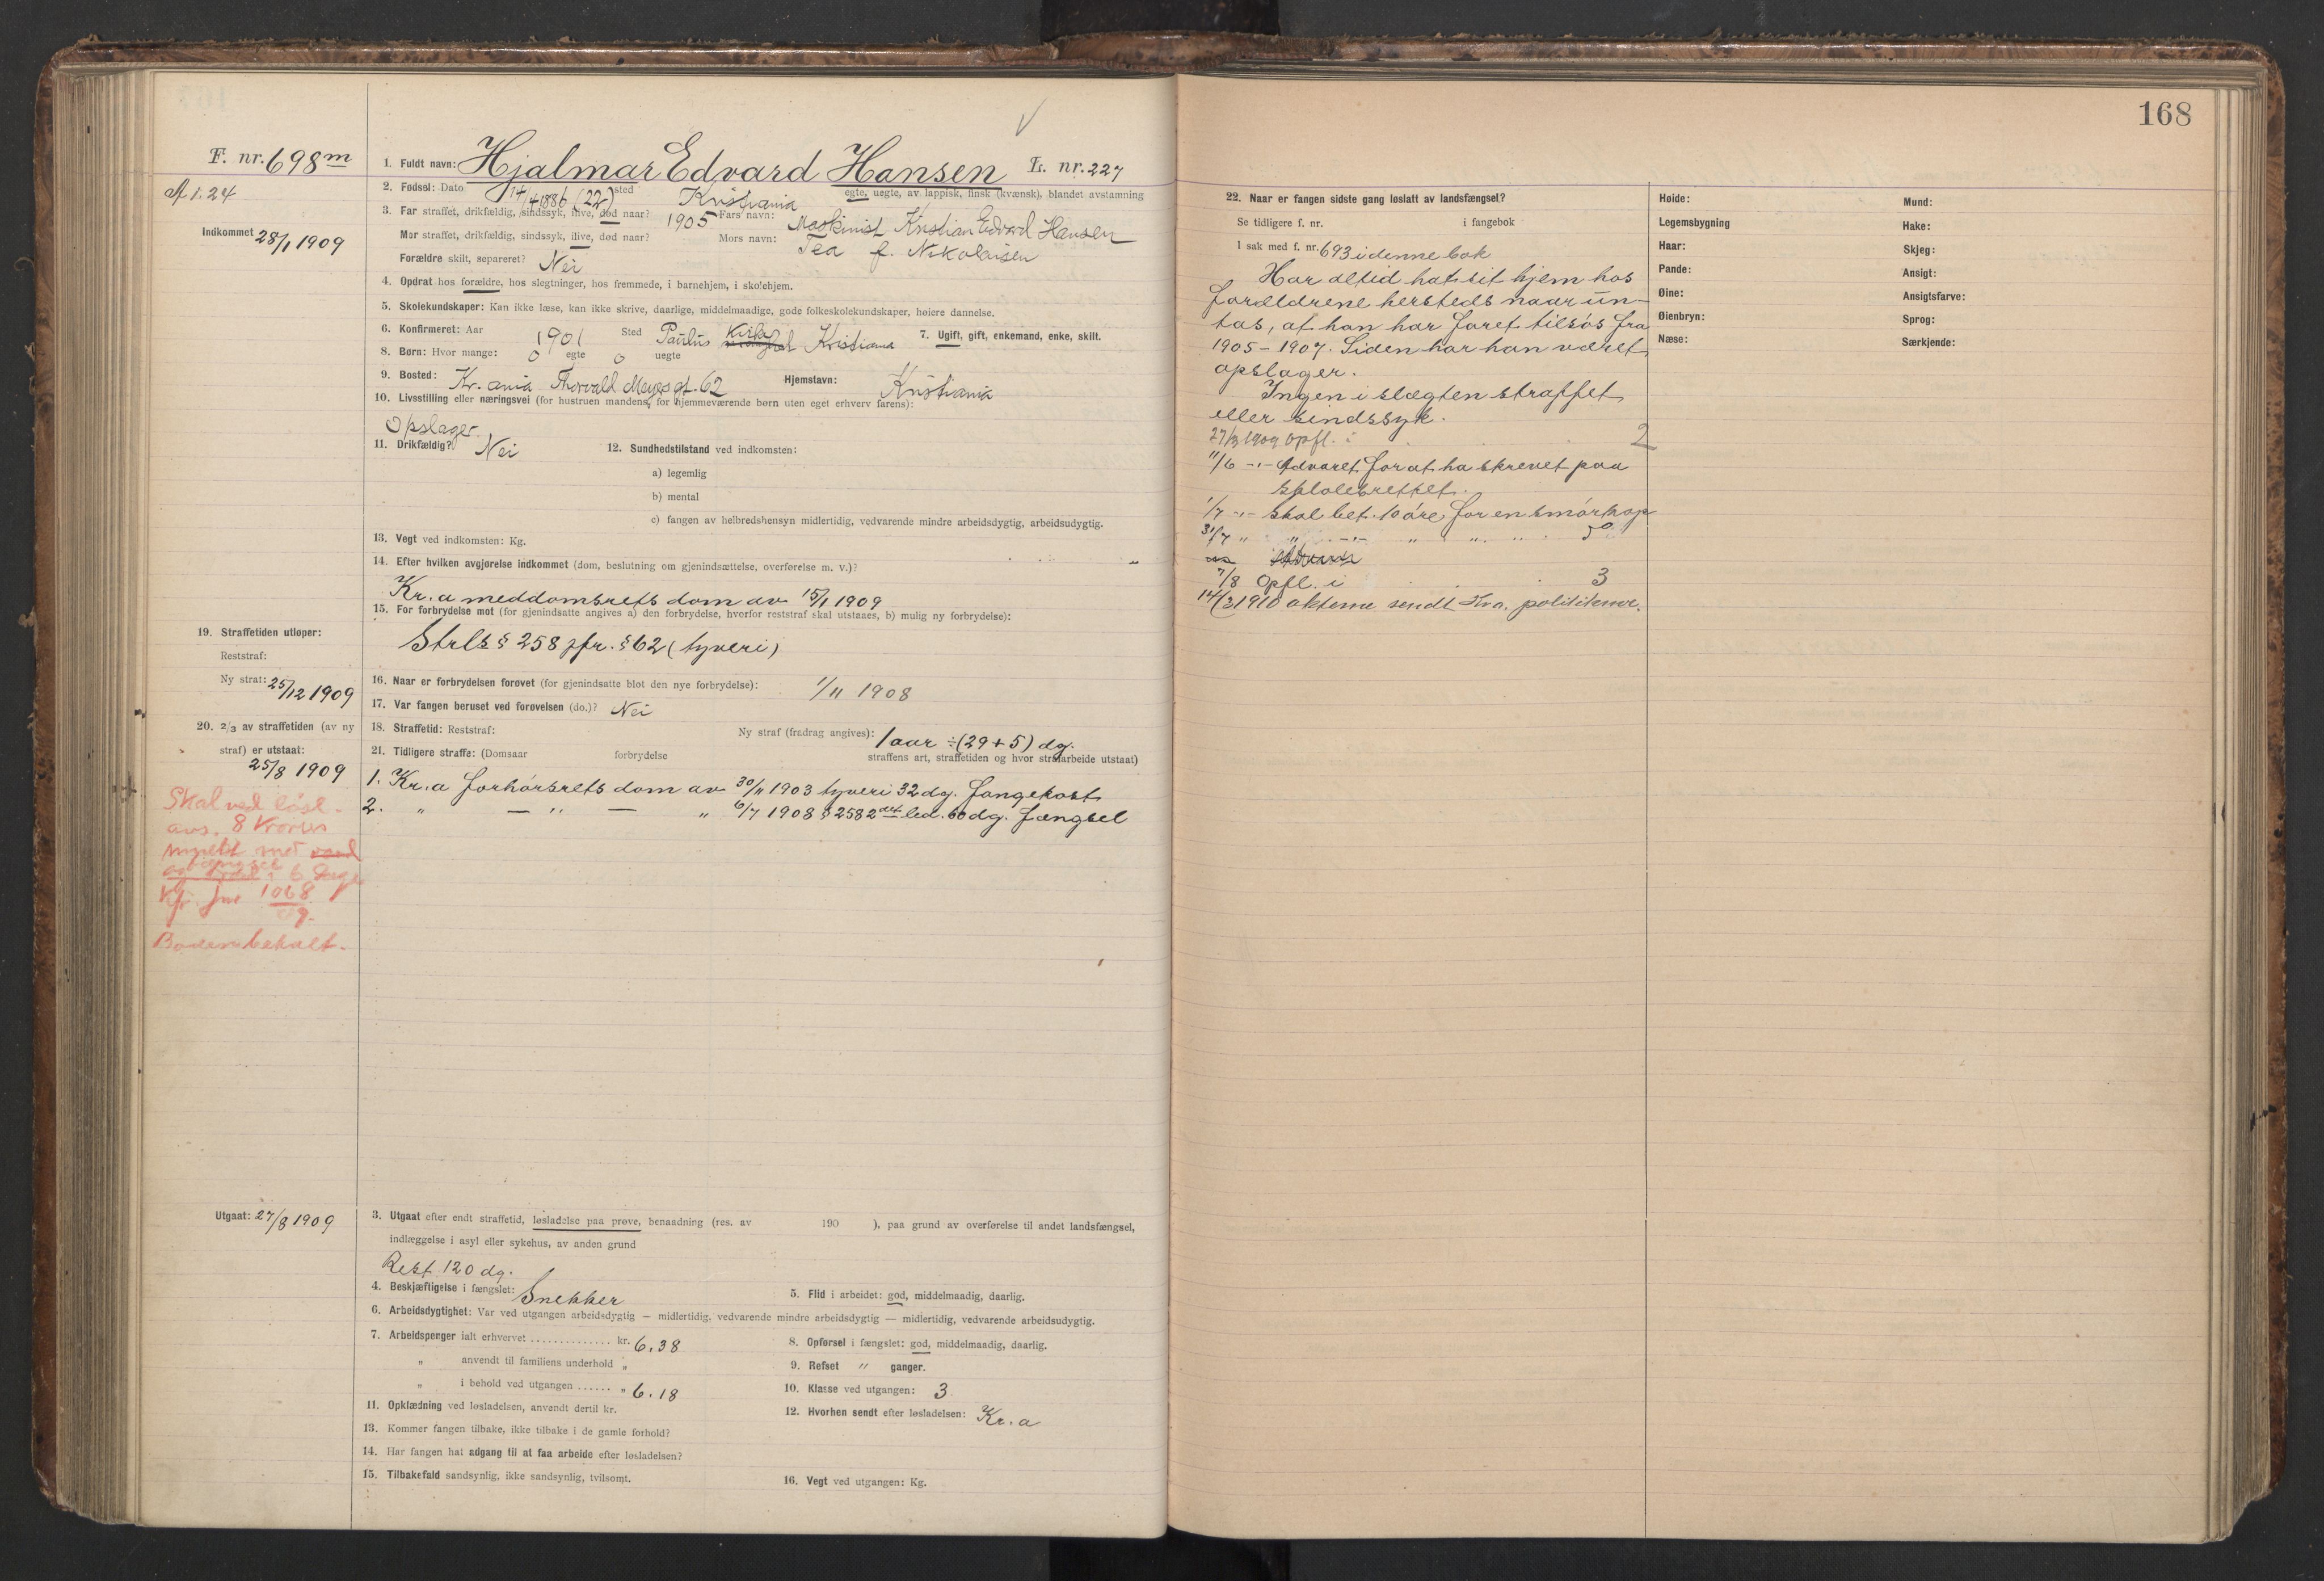 168
F. nr. 698 m
A 1. 24
Indkommet 28/1 1909
1. Fuldt navn: Hjalmar Edvard Hansen L. nr. 227
2. Fødsel: Dato 14/4 1886 (22) sted Kristiania egte, uegte, av lappisk, finsk (kvænsk), blandet avstamning
3. Far straffet, drikfældig, sindssyk, ilive, død naar? 1905 Fars navn: Maskinist Kristian Edvard Hansen
Mor straffet, drikfældig, sindssyk, ilive, død naar? Mors navn: Tea f. Nikolaisen
Forældre skilt, separeret? Nei
4. Opdrat hos forældre, hos slegtninger, hos fremmede, i barnehjem, i skolehjem.
5. Skolekundskaper: Kan ikke læse, kan ikke skrive, daarlige, middelmaadige, gode folkeskolekundskaper, høiere dannelse.
6. Konfirmeret: Aar 1901 Sted Paulus Kirke Kristiania 7. Ugift, gift, enkemand, enke, skilt.
8. Børn: Hvor mange: 0 egte 0 uegte
9. Bosted: Kr.ania Thorvald Meyes gt. 62 Hjemstavn: Kristiania
10. Livsstilling eller næringsvei (for hustruen mandens, for hjemmeværende børn uten eget erhverv farens):
Opslager.
11. Drikfældig? Nei 12. Sundhedstilstand ved indkomsten:
a) legemlig
b) mental
c) fangen av helbredshensyn midlertidig, vedvarende mindre arbeidsdygtig, arbeidsudygtig.
13. Vegt ved indkomsten: Kg.
14. Efter hvilken avgjørelse indkommet (dom, beslutning om gjenindsættelse, overførelse m. v.)?
Kr.a meddomsrets dom av 15/1 1909
15. For forbrydelse mot (for gjenindsatte angives a) den forbrydelse, hvorfor reststraf skal utstaaes, b) mulig ny forbrydelse):
Strls § 258 jfr. § 62 (tyveri)
19. Straffetiden utløper:
Reststraf:
Ny straf: 25/12 1909
16. Naar er forbrydelsen forøvet (for gjenindsatte blot den nye forbrydelse): 1/11 1908
17. Var fangen beruset ved forøvelsen (do.)? Nei
20. 2/3 av straffetiden (av ny
straf) er utstaat:
25/8 1909
18. Straffetid: Reststraf: Ny straf (fradrag angives): 1 aar ÷ (29 + 5) dg.
21. Tidligere straffe: (Domsaar forbrydelse straffens art, straffetiden og hvor strafarbeide utstaat)
1. Kr.a forhørsrets dom av 30/11 1903 tyveri 32 dg. fangekost
2. " — " — " 6/7 1908 § 258 2det led. 60 dg. fængsel
Skal ved løsl.
avs. 8 Kroner
mulkt med vand
og brød fængsel i 6 dage
Kfr. jnr 1068
09.
Boden betalt.
Utgaat: 27/8 1909
3. Utgaat efter endt straffetid, løsladelse paa prøve, benaadning (res. av 190 ), paa grund av overførelse til andet landsfængsel,
indlæggelse i asyl eller sykehus, av anden grund
Rest 120 dg.
4. Beskjæftigelse i fængslet: Snekker 5. Flid i arbeidet: god, middelmaadig, daarlig.
6. Arbeidsdygtighet: Var ved utgangen arbeidsdygtig — midlertidig, vedvarende mindre arbeidsdygtig — midlertidig, vedvarende arbeidsudygtig.
7. Arbeidspenger ialt erhvervet .............. kr. 6.38 8. Opførsel i fængslet: god, middelmaadig, daarlig.
" anvendt til familiens underhold " 9. Refset " ganger.
" i behold ved utgangen ...... " 6.18 10. Klasse ved utgangen: 3
11. Opklædning ved løsladelsen, anvendt dertil kr. 12. Hvorhen sendt efter løsladelsen: Kr.a
13. Kommer fangen tilbake, ikke tilbake i de gamle forhold?
14. Har fangen hat adgang til at faa arbeide efter løsladelsen?
15. Tilbakefald sandsynlig, ikke sandsynlig, tvilsomt. 16. Vegt ved utgangen: Kg.
22. Naar er fangen sidste gang løslatt av landsfængsel?
Se tidligere f. nr. i fangebok
I sak med f. nr. 693 i denne bok
Har altid hat sit hjem hos
forældrene hersteds naar un-
tas, at han har faret tilsøs fra
1905 – 1907. Siden har han været
opslager.
Ingen i slægten straffet
eller sindssyk.
27/3 1909 opfl. i 2
11/6 -"- Advaret for at ha skrevet paa
skolebrettet.
1/7 -"- skal bet. 10 øre for en smørkop
31/7 " " -"- " " " 5
7/8 Opfl. i 3
14/2 1910 akterne sendt Kra. politikmr.
Høide:
Legemsbygning
Haar:
Pande:
Øine:
Øienbryn:
Næse:
Mund:
Hake:
Skjeg:
Ansigt:
Ansigtsfarve:
Sprog:
Særkjende: